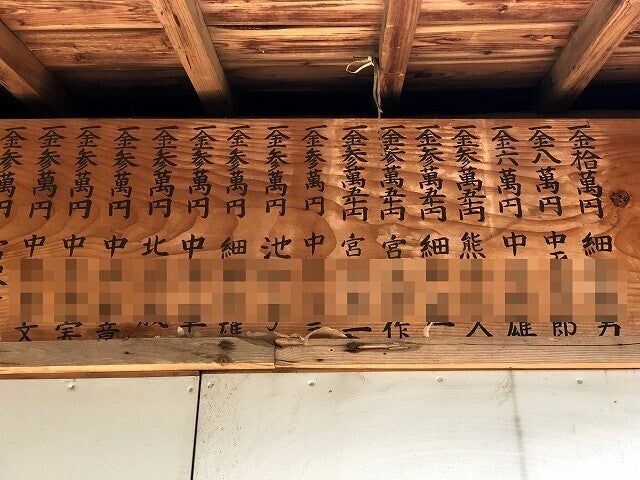 一金拾萬円 細 男
一金八萬円 中 郎
一金六萬円 中 雄
一金参萬五千円 熊 人
一金参萬五千円 細 一
一金参萬五千円 宮 作
一金参萬五千円 宮 一
一金参萬円 中 三
一金参萬円 池
一金参萬円 細 雄
一金参萬円 中
一金参萬円 北
一金参萬円 中 章
一金参萬円 中 実
一金参萬円 中 文
一金参萬円